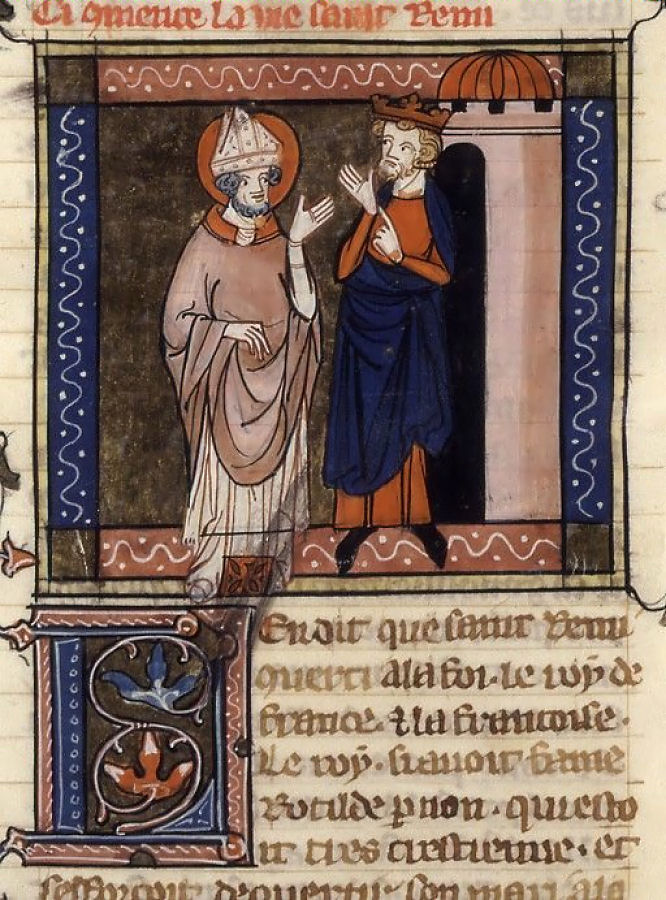 Ci cmence la vie saint Remi
En dit que saint Remi
querti a la foi. le roy de
france. & la francoise.
Le roy. si auoit fame
Rotilde p non. qui esto
it tres crestienne. et
sefforcoit de quertir son mari a la